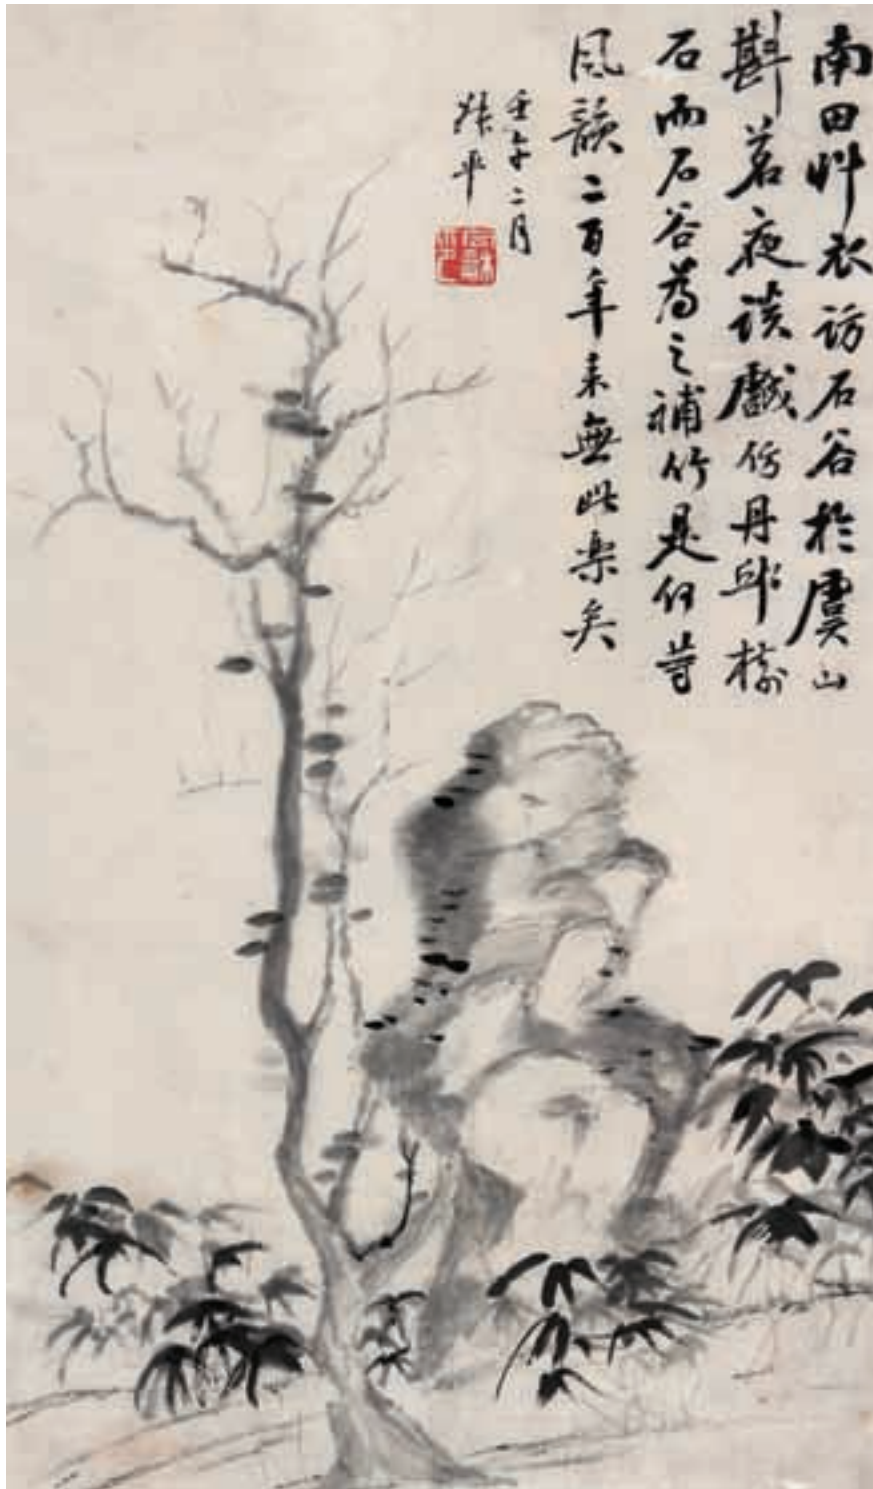 南田艸衣訪石谷於虞山
斟茗夜談戲仿丹邱樹
石而石谷為之補竹是何等
風韻二百年來無此樂矣
壬午二月
叔平